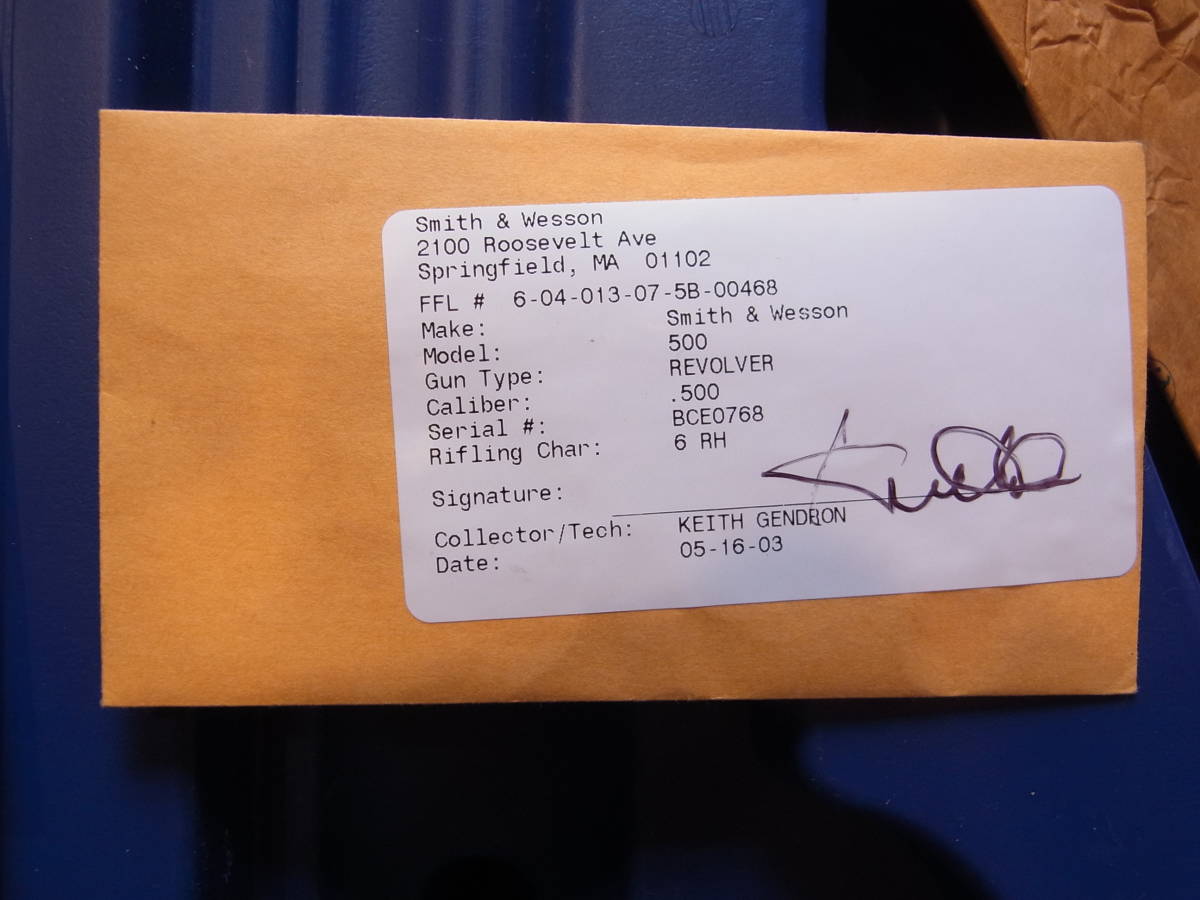 Smith & Wesson
2100 Roosevelt Ave
Springfield, MA 01102
FFL # 6-04-013-07-5B-00468
Make: Smith & Wesson
Model: 500
Gun Type: REVOLVER
Caliber: .500
Serial #: BCE0768
Rifling Char: 6 RH
Signature:
Collector/Tech: KEITH GENDRON
Date: 05-16-03